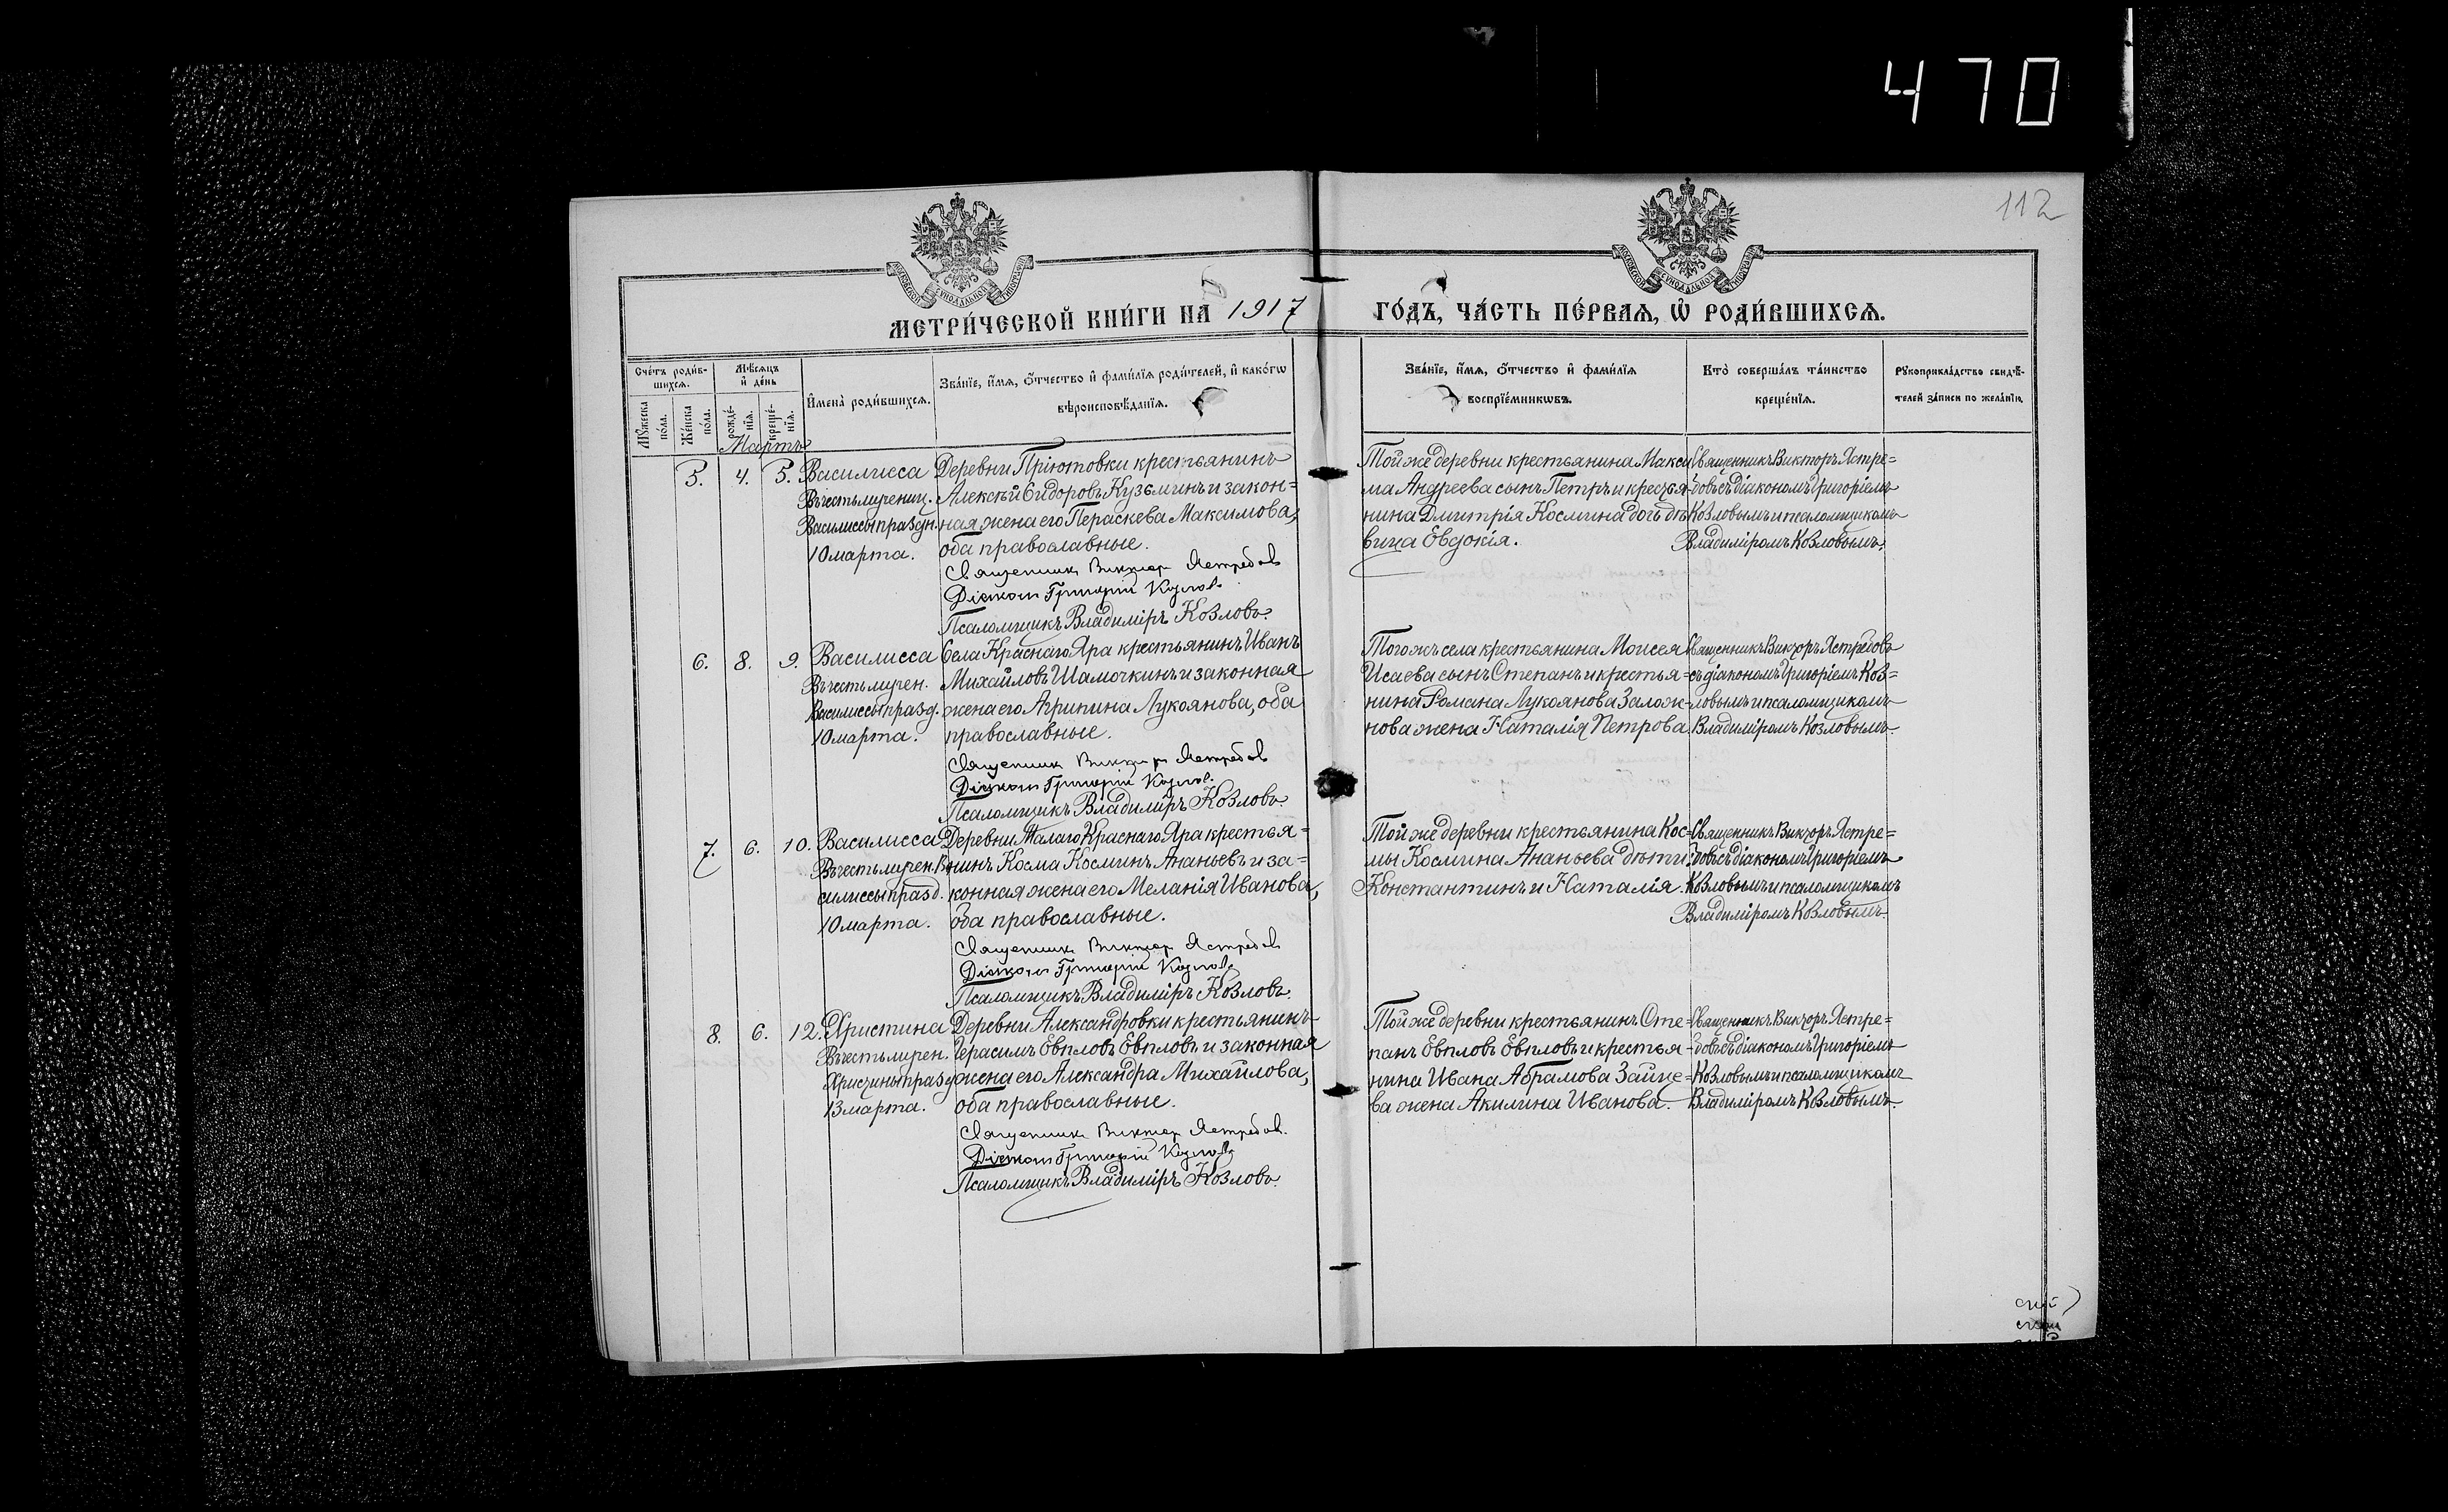 470
112
МОСКОВСКОЙ СѴНОДАЛЬНОЙ ТИПОГРАФІИ
МОСКОВСКОЙ СѴНОДАЛЬНОЙ ТИПОГРАФІИ
МЕТРИ́ЧЕСКОЙ КНИ́ГИ НА 1917 ГО́ДЪ, ЧА́СТЬ ПЕ́РВАѦ, Ѡ҆ РОДИ́ВШИХСѦ.
Сче́тъ роди́в-
шихсѧ.
Мѣ́сѧцъ
и҆ де́нь
Мꙋ́жеска
по́ла.
Же́нска
по́ла.
рожде́-
нїѧ.
креще́-
нїѧ.
И҆мена̀ роди́вшихсѧ.
Зва́нїе, и҆́мѧ, ѻ҆́тчество и҆ фами́лїѧ роди́телей, и҆ како́гѡ
вѣроисповѣ́данїѧ.
Зва́нїе, и҆́мѧ, ѻ҆́тчество и҆ фами́лїѧ
воспрїе́мникѡвъ.
Кто̀ соверша́лъ та́инство
креще́нїѧ.
Рꙋкоприкла́дство свидѣ́-
телей за́писи по жела́нїю.
Мартъ
5. 4. 5.
Василисса
Въ честь мучениц.
Василиссы праздн.
10 марта.
Деревни Пріютовки крестьянинъ
Алексѣй Сидоровъ Кузьминъ и закон=
ная жена его Параскева Максимова,
оба православные.
Священникъ Викторъ Ястребовъ
Діаконъ Григорій Козловъ
Псаломщикъ Владиміръ Козловъ.
Той же деревни крестьянина Макси
ма Андреева сынъ Петръ и крестья-
нина Дмитрія Космина дочь дѣ
вица Евдокія.
Священникъ Викторъ Ястре=
бовъ съ діакономъ Григоріемъ
Козловымъ и псаломщикомъ
Владиміромъ Козловымъ.
6. 8. 9.
Василисса
Въ честь мучен.
Василиссы празд.
10 марта.
Села Краснаго Яра крестьянинъ Иванъ
Михайловъ Шамочкинъ и законная
жена его Агрипина Лукоянова, оба
православные.
Священникъ Викторъ Ястребовъ
Діаконъ Григорій Козловъ.
Псаломщикъ Владиміръ Козловъ.
Того жъ села крестьянина Моисея
Исаева сынъ Степанъ и крестья-
нина Романа Лукоянова Залож-
нова жена Наталія Петрова.
Священникъ Викторъ Ястребовъ
съ діакономъ Григоріемъ Коз=
ловымъ и псаломщикомъ
Владиміромъ Козловымъ.
7. 6. 10.
Василисса
Въ честь мучен. Ва
силиссы празд.
10 марта.
Деревни Малаго Краснаго Яра крестья=
нинъ Косма Косминъ Ананьевъ и за=
конная жена его Меланія Иванова,
оба православные.
Священникъ Викторъ Ястребовъ
Діаконъ Григорій Козловъ
Псаломщикъ Владиміръ Козловъ.
Той же деревни крестьянина Кос-
мы Космина Ананьева дѣти:
Константинъ и Наталія.
Священникъ Викторъ Ястре=
бовъ съ діакономъ Григоріемъ
Козловымъ и псаломщикомъ
Владиміромъ Козловымъ.
8. 6. 12.
Христина
Въ честь мучен.
Христины празд
13 марта.
Деревни Александровки крестьянинъ
Герасимъ Евпловъ Евпловъ и законная
жена его Александра Михайлова,
оба православные.
Священникъ Викторъ Ястребовъ.
Діаконъ Григорій Козловъ
Псаломщикъ Владиміръ Козловъ.
Той же деревни крестьянинъ Сте-
панъ Евпловъ Евпловъ и крестья-
нина Ивана Абрамова Зайце=
ва жена Акилина Иванова.
Священникъ Викторъ Ястре=
бовъ съ діакономъ Григоріемъ
Козловымъ и псаломщикомъ
Владиміромъ Козловымъ.